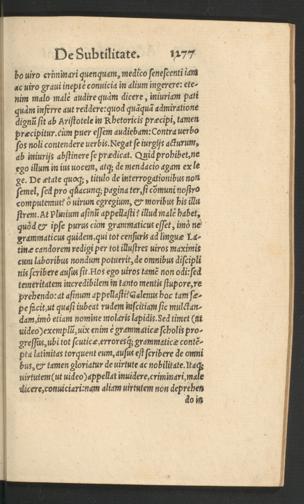 De Subtilitate. 1277
bo uiro criminari quenquam, medico senescenti iam
ac uiro graui ineptè conuicia in alium ingerere: ete-
nim malo malè audire quàm dicere, iniuriam pati
quàm inferre aut reddere: quod quāquā admiratione
dignū sit ab Aristotele in Rhetoricis præcipi, tamen
præcipitur. cim puer essem audiebam: Contra uerbo
sos noli contendere uerbis. Negat se iurgijs acturum,
ab iniurijs abstinere se prædicat. Quid prohibet, ne
ego illum in ius uocem, atq; de mendacio agam ex le
ge. De ætate quoq;, titulo de interrogationibus non
semel, sed pro quacunq; pagina ter, si cōmuni nostro
computemus? ô uirum egregium, & moribus his illu
strem. At Plurium asinū appellasti? illud malè habet,
quòd & ipse purus cùm grammaticus esset, imò ne
grammaticus quidem, qui tot censuris ad linguæ La-
tinæ candorem redigi per tot illustres uiros maximis
cum laboribus nondum potuerit, de omnibus discipli
nis scribere ausus sit. Hos ego uiros tamē non odi: sed
temeritatem incredibilem in tanto mentis stupore, re
prehendo: at asinum appellasti? Galenus hoc tam sæ-
pe facit, ut quasi iubeat rudem inscitiam sic mulctan-
dam, imò etiam nomine molaris lapidis. Sed timet (ut
uideo) exemplū, uix enim è grammaticæ scholis pro-
gressus, ubi tot scuticæ, erroresq; grammaticæ contē-
pta latinitas torquent eum, ausus est scribere de omni
bus, & tamen gloriatur de uirtute ac nobilitate. Itaq;
uirtutem (ut uideo) appellat inuidere, criminari, male
dicere, conuiciari: nam aliam uirtutem non deprehen
do in